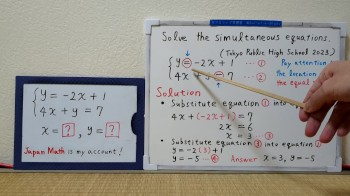 y = -2x + 1
4x + y = 7
x = ?, y = ?
Japan Math is my account!
Solve the simultaneous equations.
(Tokyo Public High School 2023)
y = -2x + 1 … ①
4x + y = 7 … ②
Pay attention
the location
the equal
Solution
• Substitute equation ① into equation ②
4x + (-2x + 1) = 7
2x = 6
x = 3 … ③
• Substitute equation ③ into equation ①
y = -2(3) + 1
y = -5 … ④
Answer x = 3, y = -5